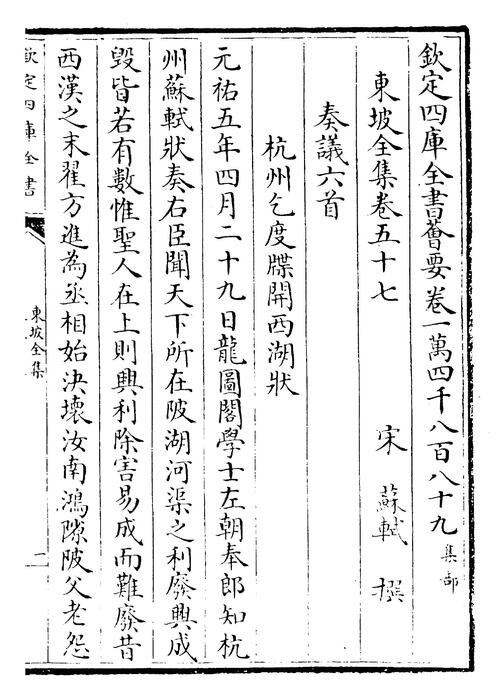 欽定四庫全書薈要卷一萬四千八百八十九 集部
東坡全集卷五十七 宋 蘇軾 撰
奏議六首
杭州乞度牒開西湖狀
元祐五年四月二十九日龍圖閣學士左朝奉郎知杭
州蘇軾狀奏右臣聞天下所在陂湖河渠之利廢興成
毀皆若有數惟聖人在上則興利除害易成而難廢昔
西漢之末翟方進為丞相始決壞汝南鴻隙陂父老怨
欽定四庫全書
東坡全集